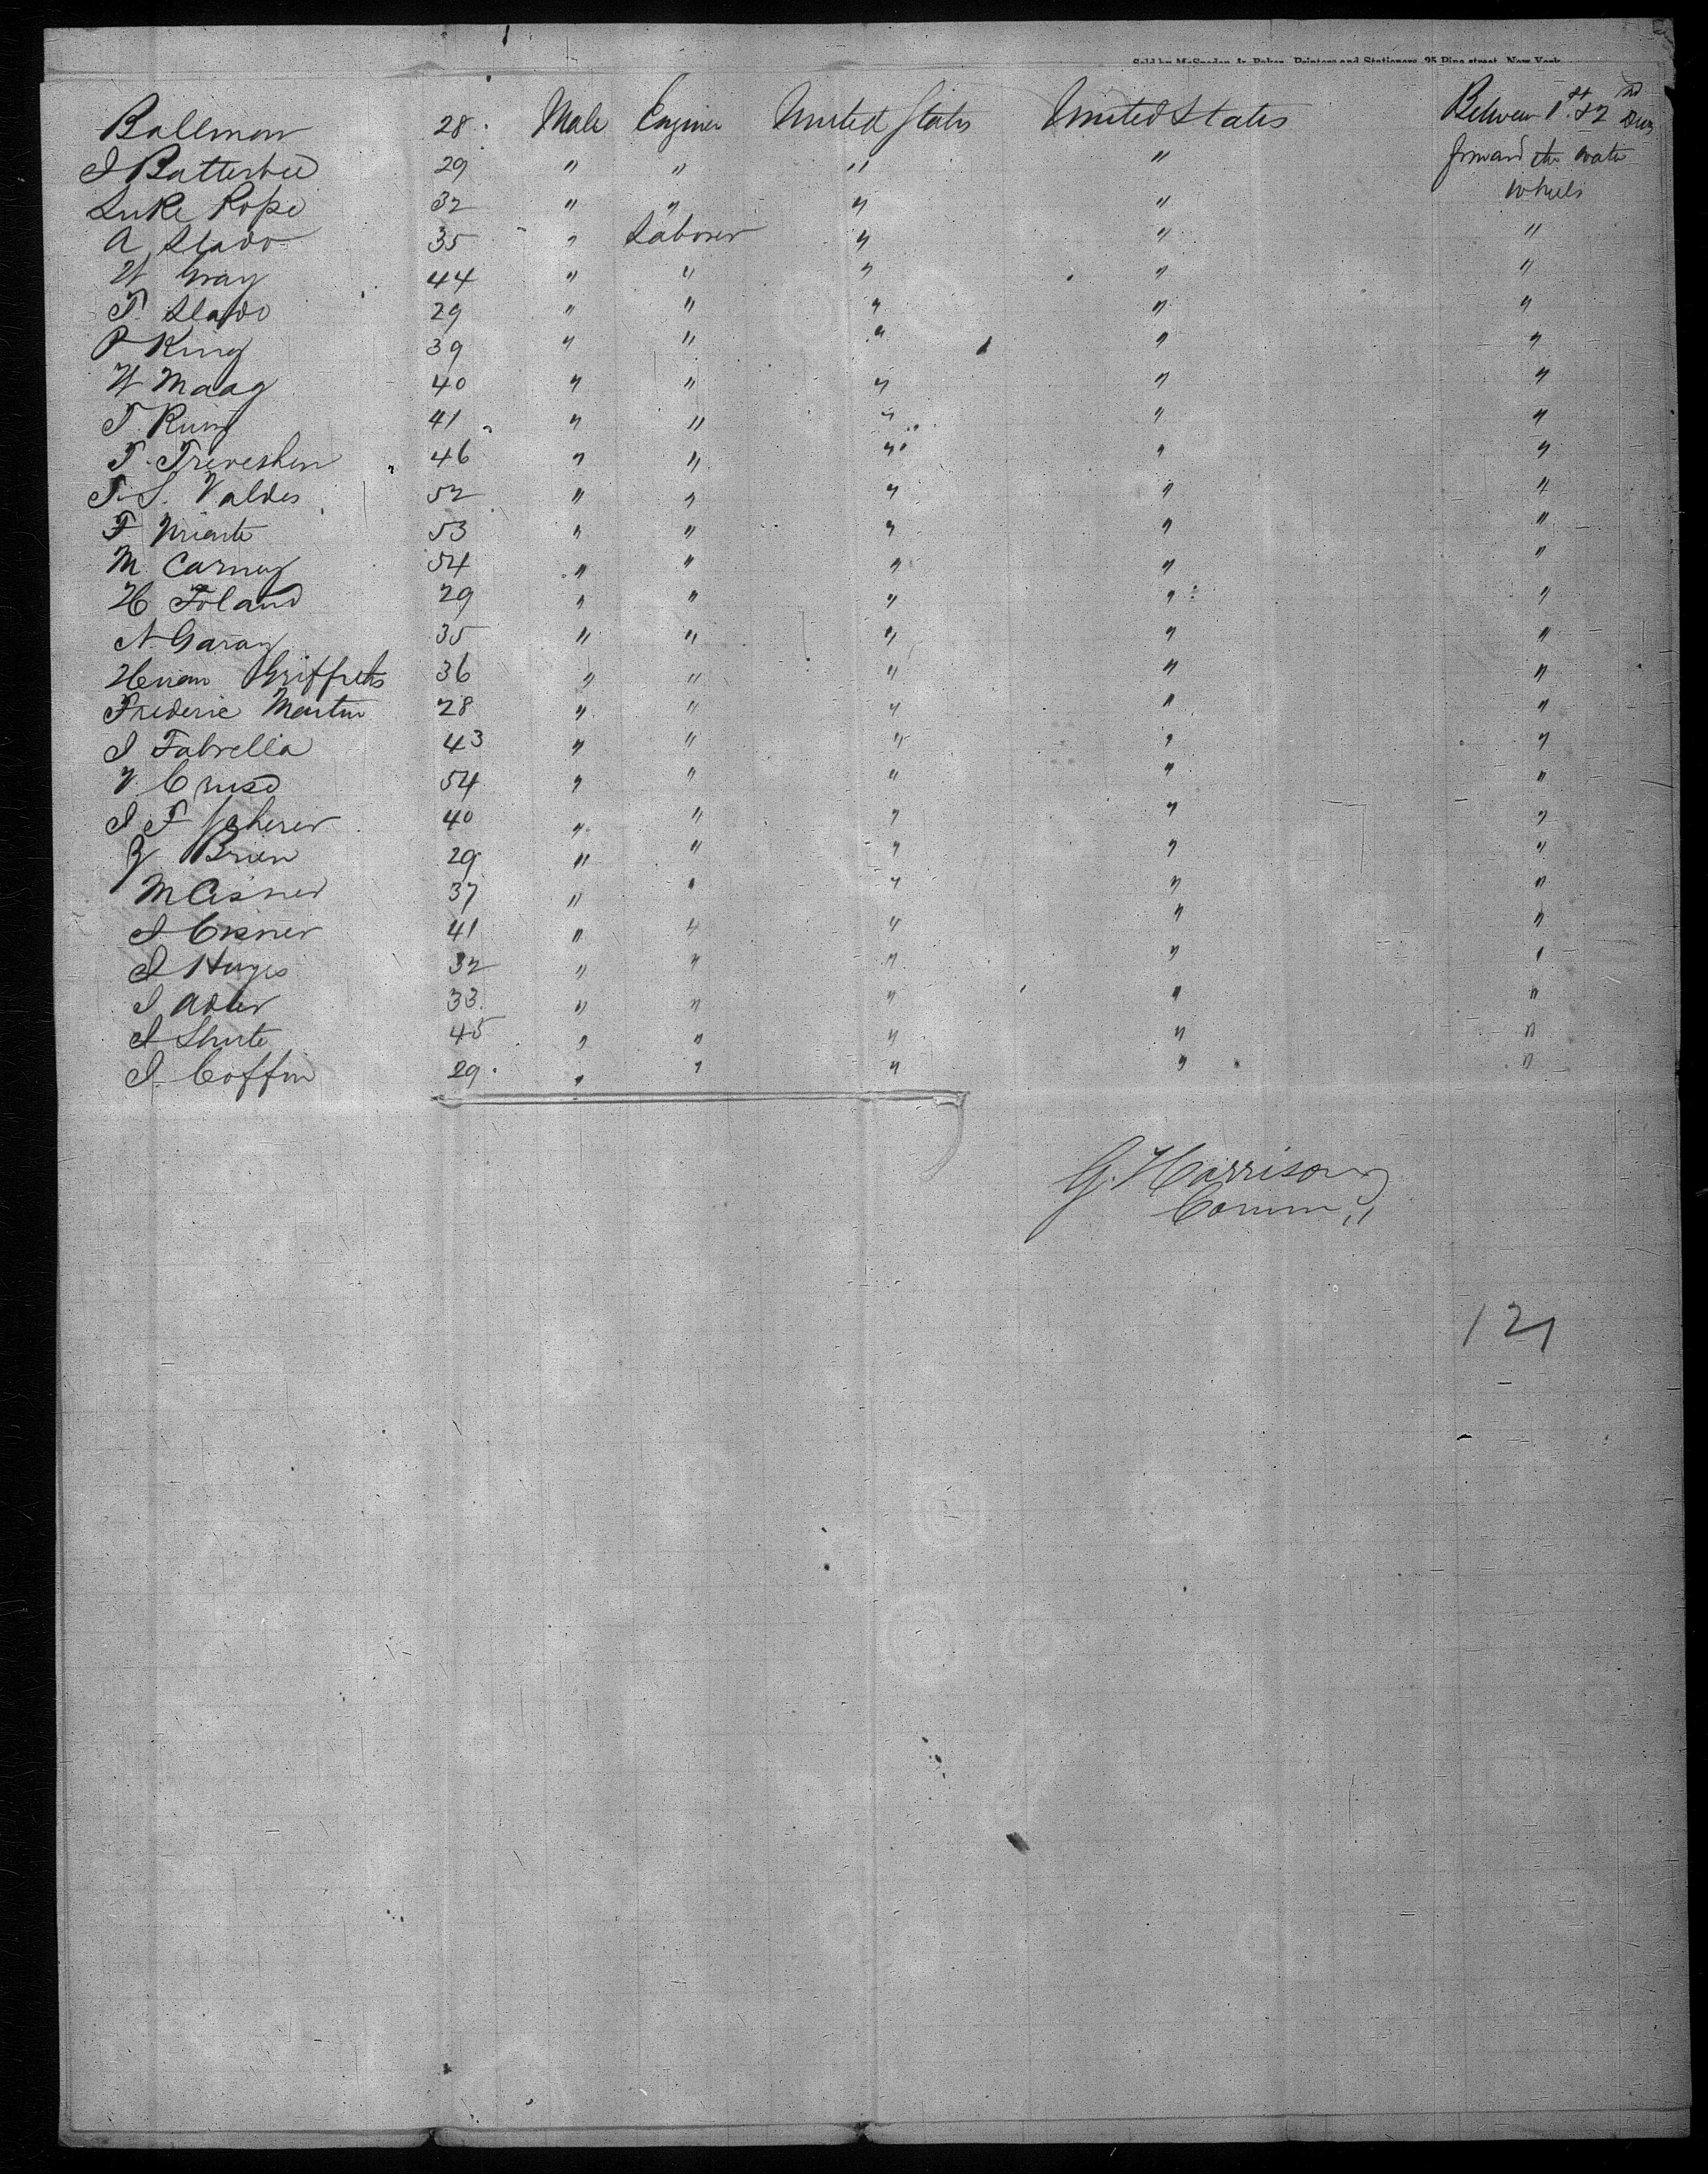 Sold by McSpedon & Baker, Printers and Stationers, 25 Pine street, New York
Ballman 28 Male Engineer United States United States Between 1st & 2nd Deck
J Batterbee 29 " " " " forward the water
wheels
Luke Pope 32 " " " "
A Slado 35 " Laborer " " "
W Gray 44 " " " " "
T. Slado 29 " " " " "
P King 39 " " " " "
W Maag 40 " " " " "
T. King 41 " " " " "
T. Trereshen 46 " " " " "
T. S. Valdes 52 " " " " "
F Uriarte 53 " " " " "
M. Carney 54 " " " " "
H Foland 29 " " " " "
N. Garay 35 " " " " "
Griffiths 36 " " " " "
Frederic Martin 28 " " " " "
J Fabrella 43 " " " " "
V. Cruso 54 " " " " "
J F Scherer 40 " " " " "
Brien 29 " " " " "
M Cisner 37 " " " " "
J Cisner 41 " " " " "
J Hayes 32 " " " " "
J Adler 33 " " " " "
J Shute 45 " " " " "
J. Coffin 29 " " " " "
G. Harrison
Comm
121